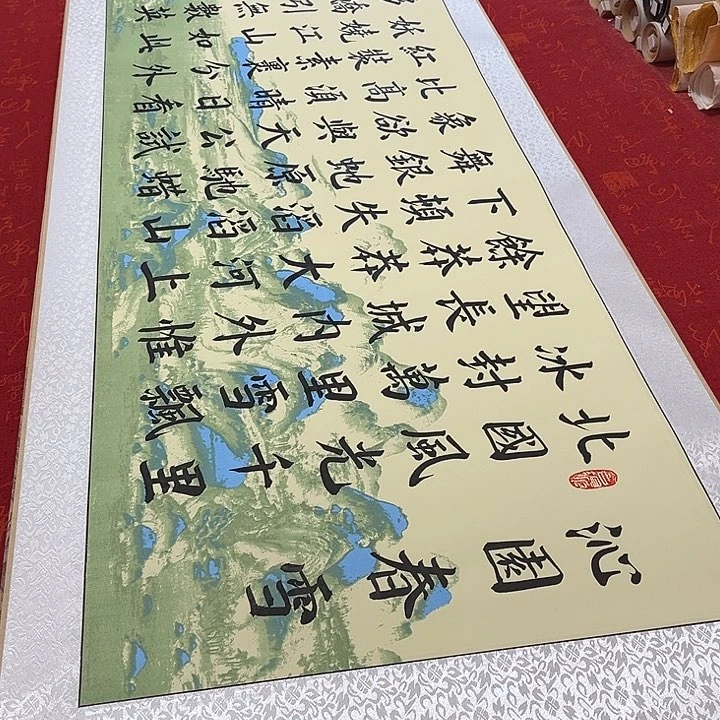 沁園春雪
北國風光千里
冰封萬里雪飄
望長城內外惟
餘莽莽大河上
下頓失滔滔山
舞銀蛇原馳蜡
象欲與天公試
比高須晴日看
紅裝素裹分外
妖嬈江山如此
多嬌引無數英